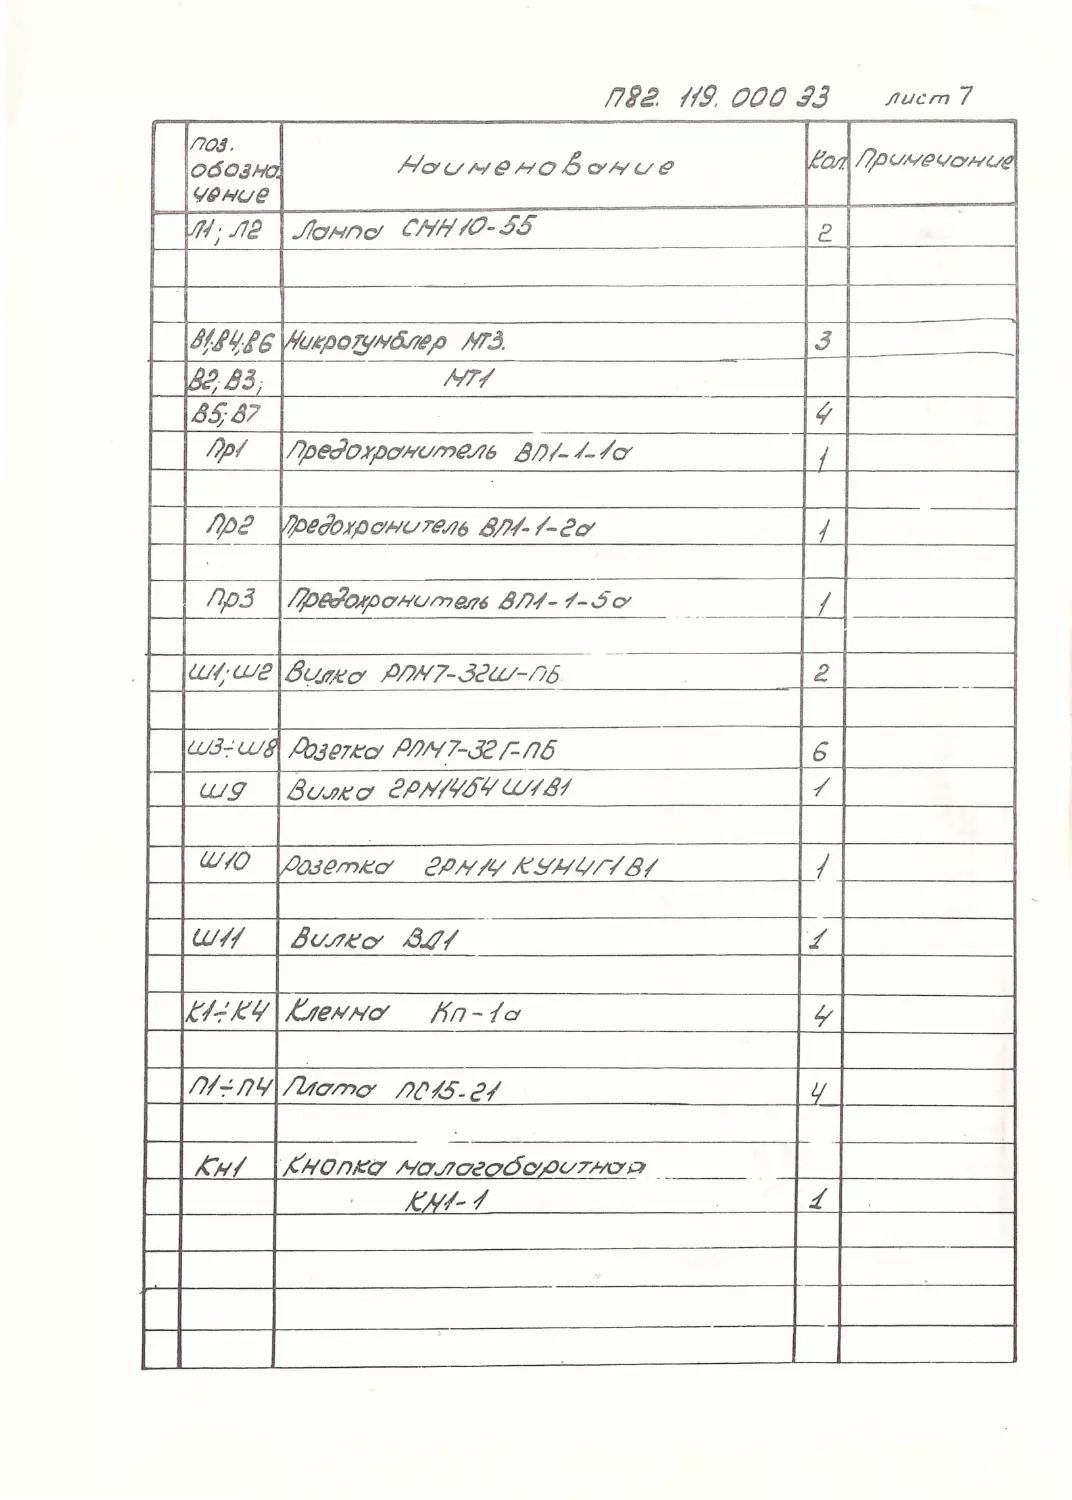 П82. 119. 000 ЭЗ лист 7
поз. обозна чение Наименование Кол. Примечание
Л1; Л2 Лампа СМН10-55 2
В1;В4;В6 Микротумблер МТ3. 3
В2; В3; МТ1
В5; В7 4
Пр1 Предохранитель ВП1-1-1а 1
Пр2 Предохранитель ВП1-1-2а 1
Пр3 Предохранитель ВП1-1-5а 1
Ш1; Ш2 Вилка РПМ7-32Ш-ПБ 2
Ш3÷Ш8 Розетка РПМ7-32Г-ПБ 6
Ш9 Вилка 2РМ14Б4Ш1В1 1
Ш10 Розетка 2РМ14КУМ4Г1В1 1
Ш11 Вилка ВД1 1
К1÷К4 Клемма Кп-1а 4
П1÷П4 Плата ПС15-21 4
Кн1 Кнопка малагабаритная
КМ1-1 1